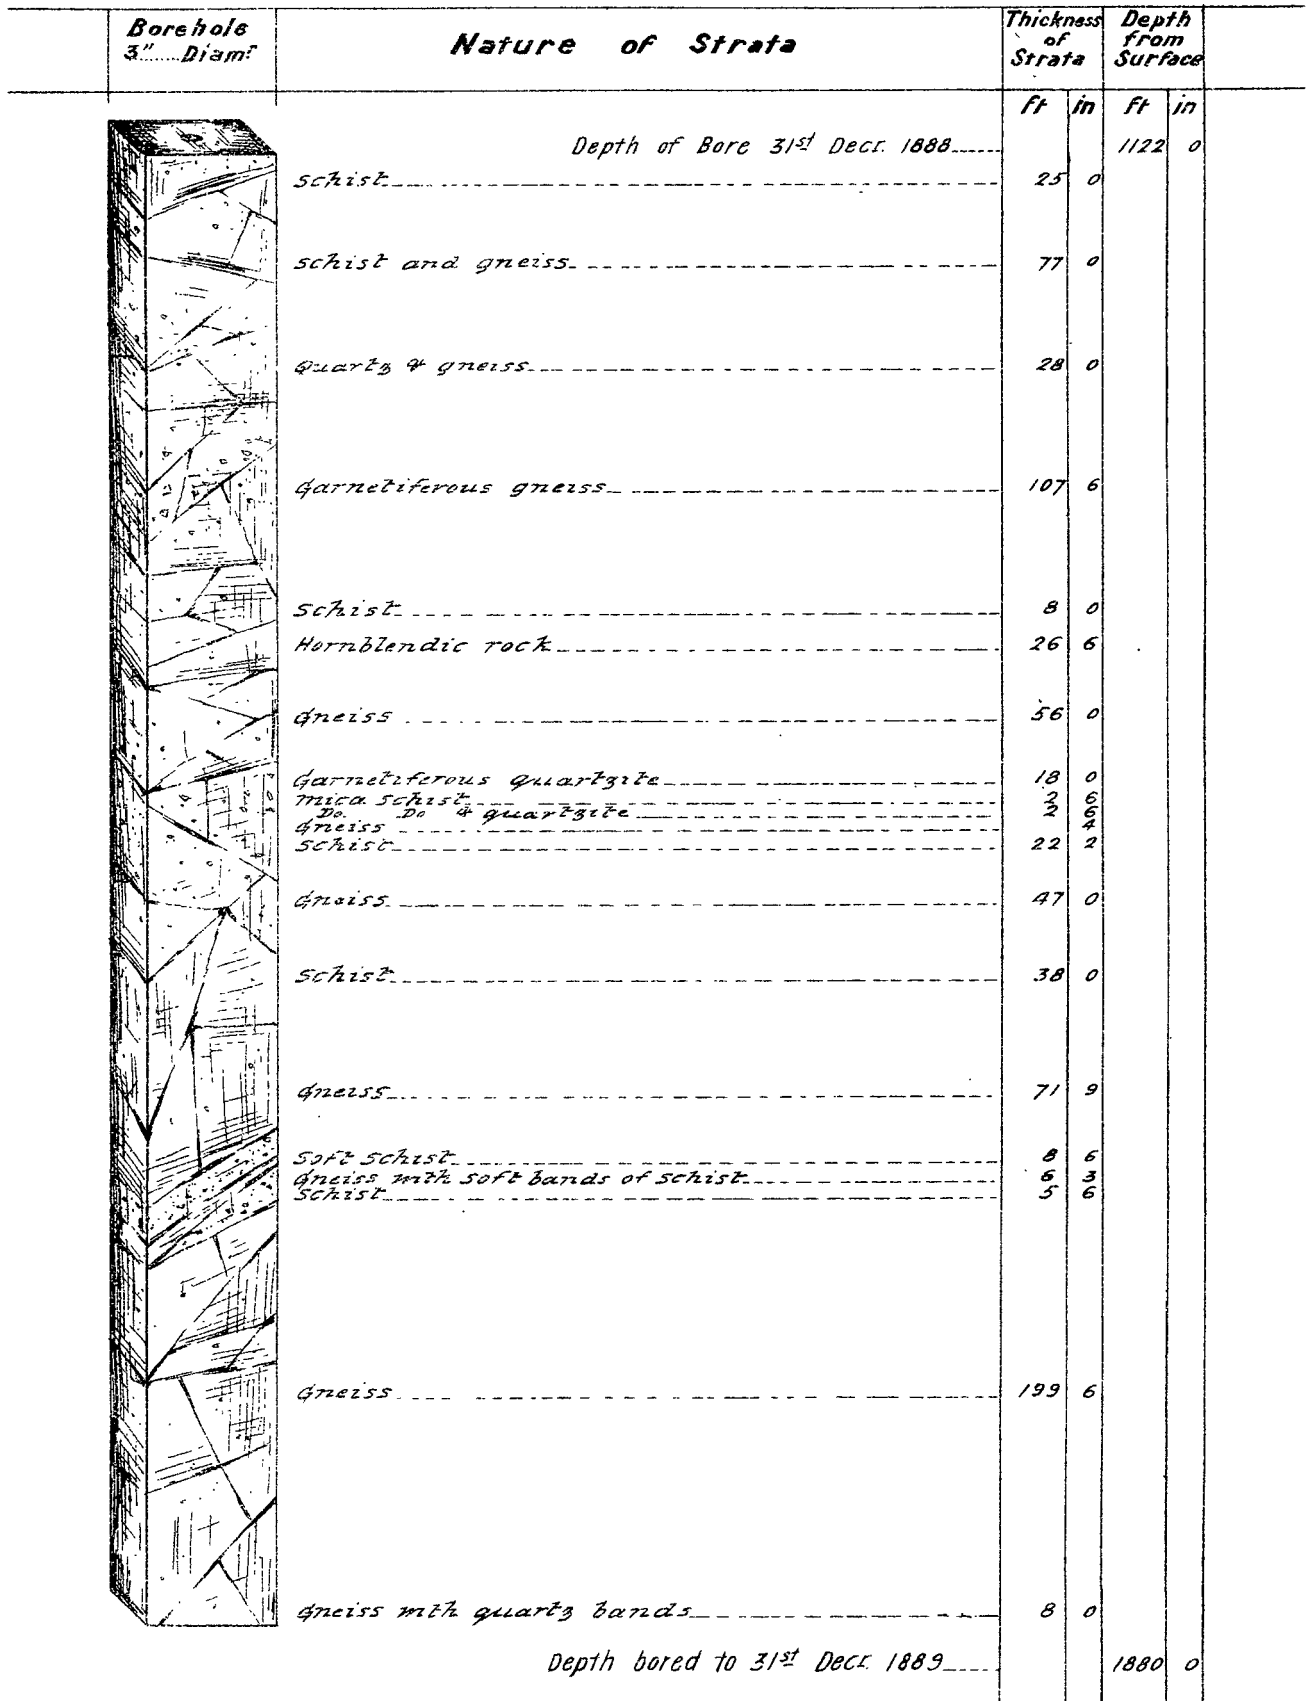 Borehole
3" Diamr
Nature of Strata
Thickness of Strata
Depth from Surface
ft in ft in
Depth of Bore 31st Decr. 1888 1122 0
Schist 25 0
Schist and gneiss 77 0
Quartz & gneiss 28 0
Garnetiferous gneiss 107 6
Schist 8 0
Hornblendic rock 26 6
Gneiss 56 0
Garnetiferous quartzite 18 0
Mica schist 2 6
Do. Do & quartzite 2 6
Gneiss 4
Schist 22 2
Gneiss 47 0
Schist 38 0
Gneiss 71 9
Soft schist 8 6
Gneiss with soft bands of schist 6 3
Schist 5 6
Gneiss 199 6
Gneiss with quartz bands 8 0
Depth bored to 31st Decr. 1889 1880 0